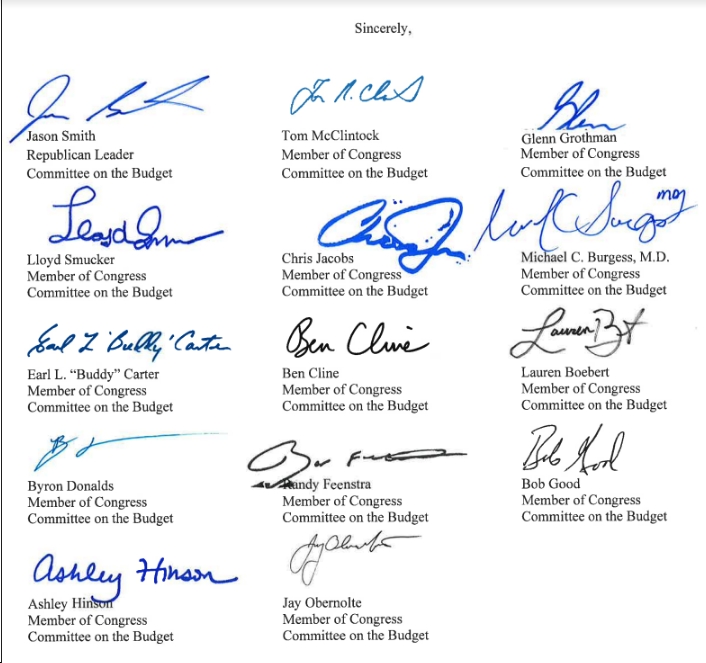 Sincerely,
Jason Smith
Republican Leader
Committee on the Budget
Tom McClintock
Member of Congress
Committee on the Budget
Glenn Grothman
Member of Congress
Committee on the Budget
Lloyd Smucker
Member of Congress
Committee on the Budget
Chris Jacobs
Member of Congress
Committee on the Budget
Michael C. Burgess, M.D.
Member of Congress
Committee on the Budget
Earl L "Buddy" Carter
Earl L. “Buddy” Carter
Member of Congress
Committee on the Budget
Ben Cline
Ben Cline
Member of Congress
Committee on the Budget
Lauren
Lauren Boebert
Member of Congress
Committee on the Budget
Byron Donalds
Member of Congress
Committee on the Budget
Randy Feenstra
Member of Congress
Committee on the Budget
Bob Good
Bob Good
Member of Congress
Committee on the Budget
Ashley Hinson
Ashley Hinson
Member of Congress
Committee on the Budget
Jay Obernolte
Member of Congress
Committee on the Budget